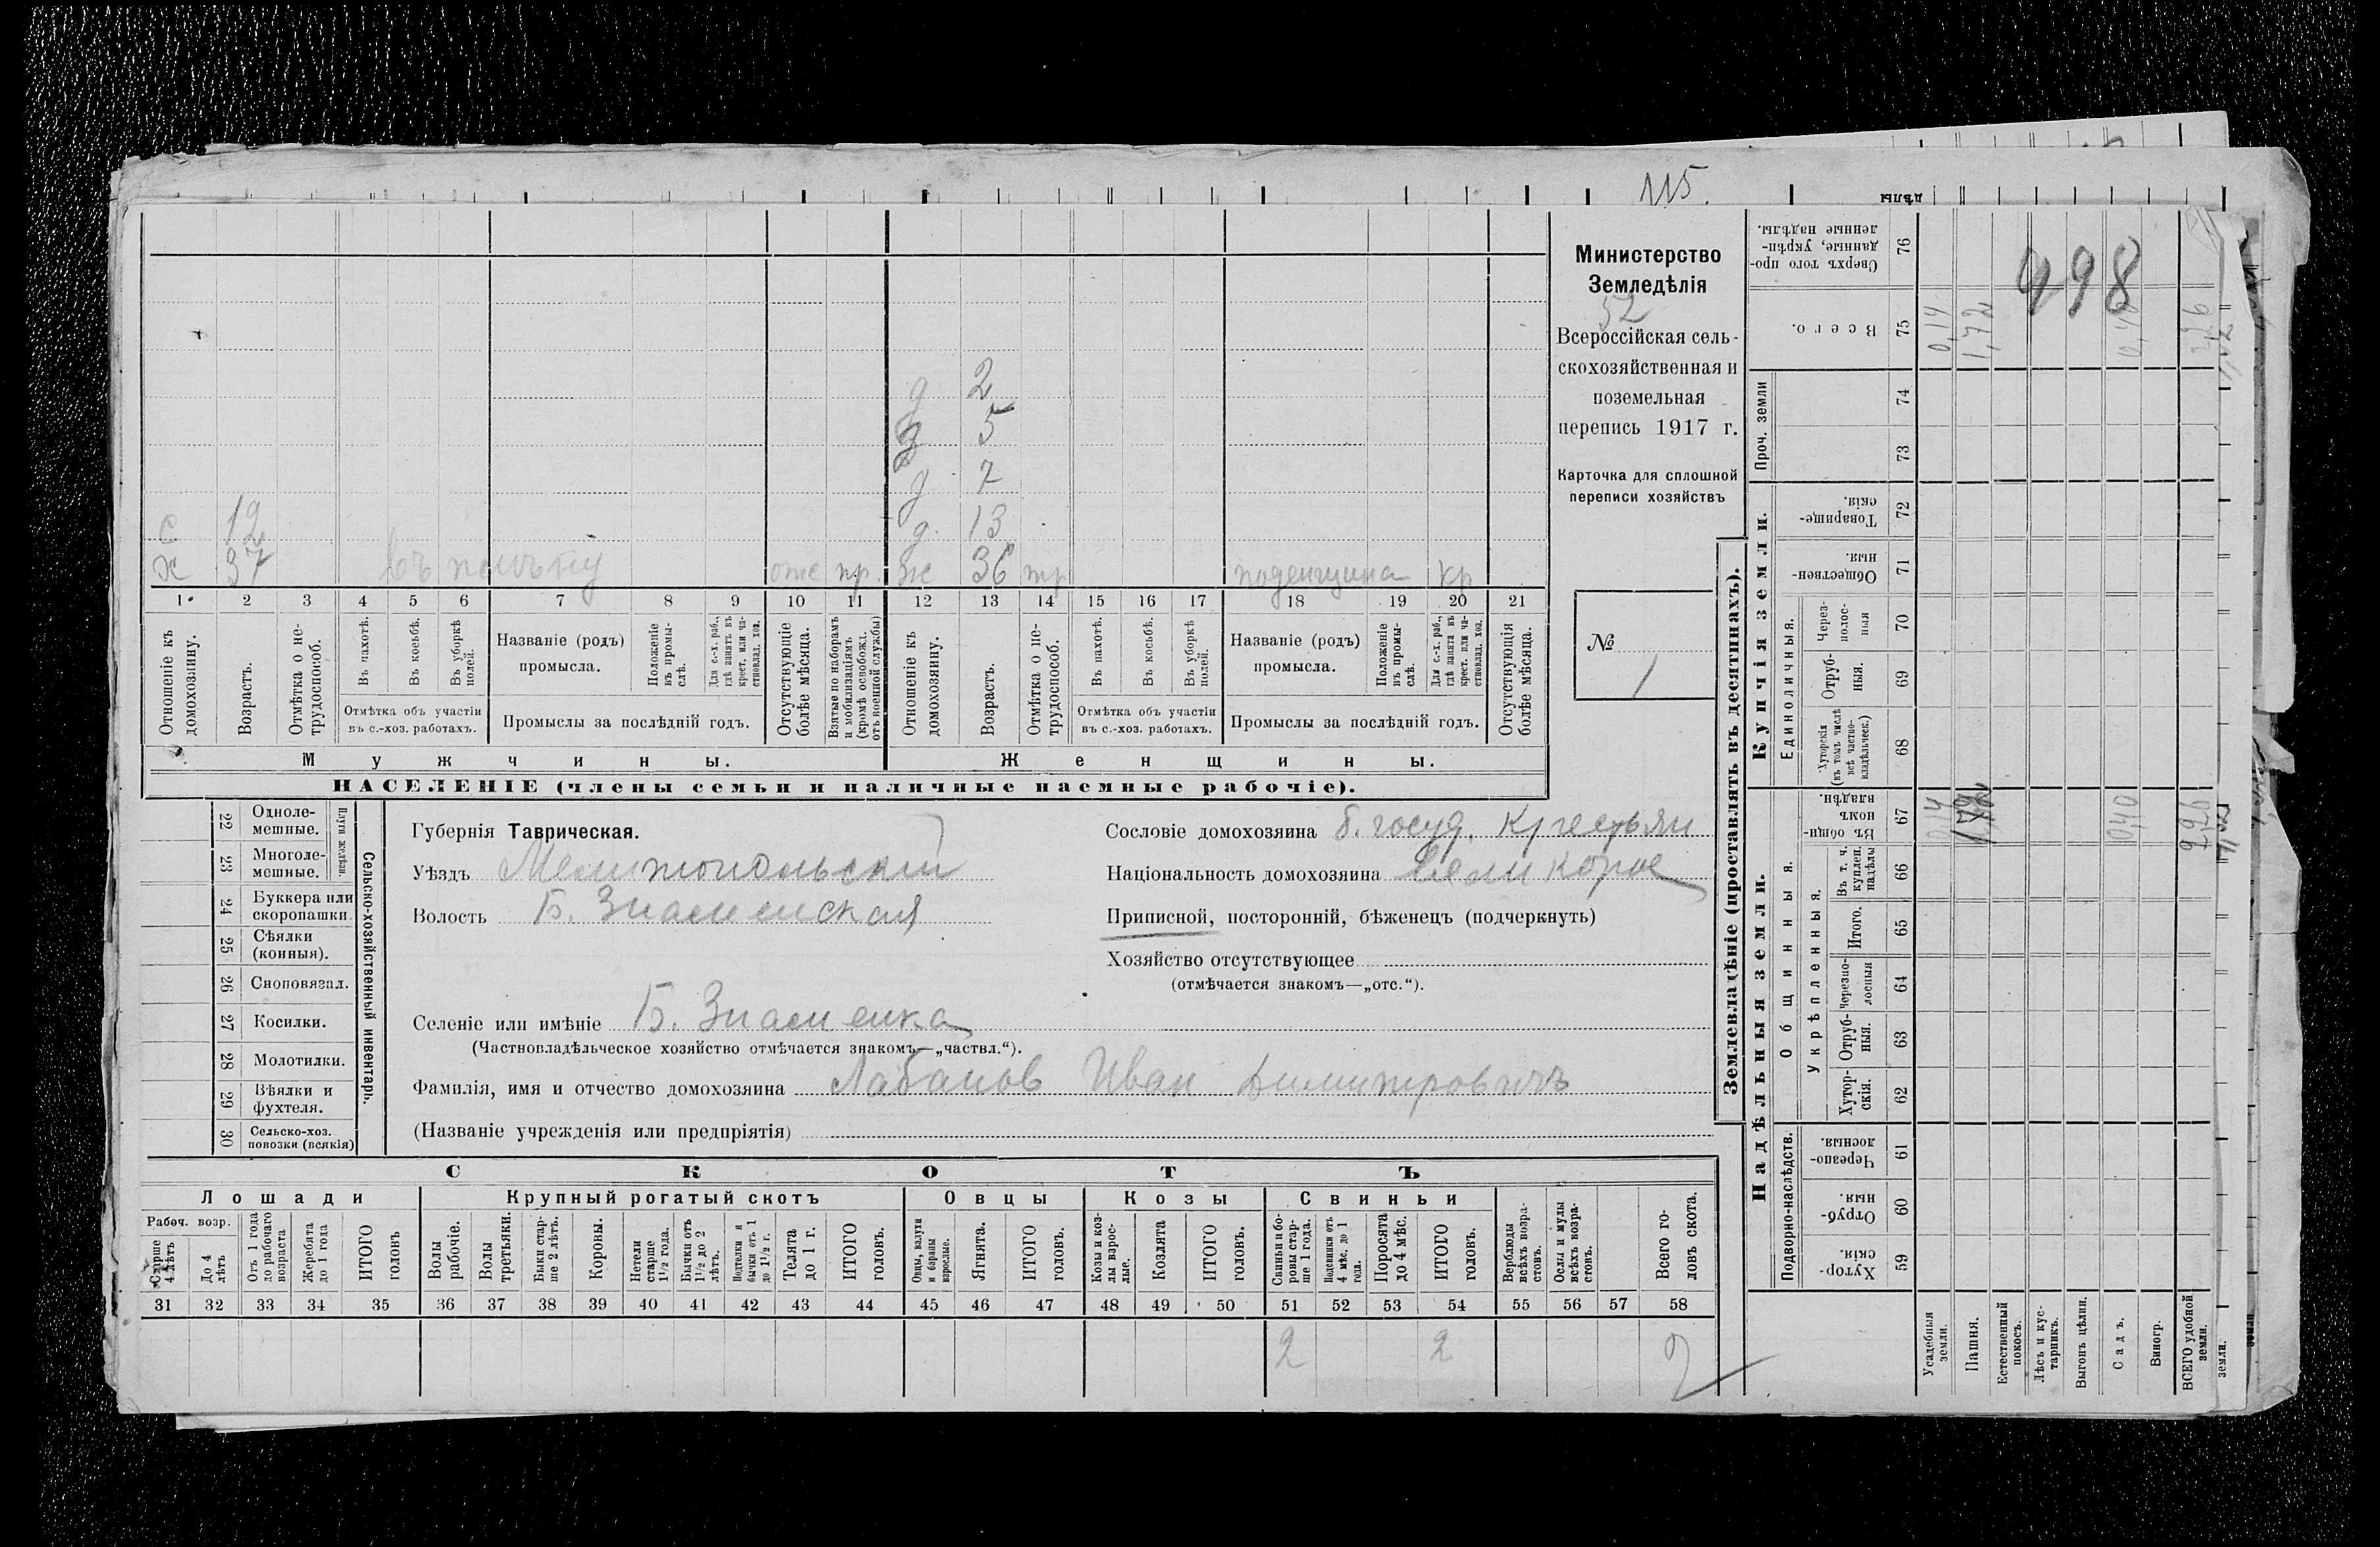 115.
Министерство
Земледѣлія
52
Всероссійская сель-
скохозяйственная и
поземельная
перепись 1917 г.
Карточка для сплошной
переписи хозяйствъ
№
1
д 2
д 5
д 7
с 12 д. 13
х 37 отс пр. ж 36 тр поденщина кр
1 2 3 4 5 6 7 8 9 10 11 12 13 14 15 16 17 18 19 20 21
Отношеніе къ домохозяину.
Возрастъ.
Отмѣтка о не-трудоспособ.
Въ пахотѣ.
Въ косьбѣ.
Въ уборкѣ полей.
Отмѣтка объ участіи
въ с.-хоз. работахъ.
Названіе (родъ)
промысла.
Положеніе въ промы-слѣ.
Для с.-х. раб., гдѣ занятъ въ крест. или ча-стновлад. хоз.
Промыслы за послѣдній годъ.
Отсутствующіе болѣе мѣсяца.
Взятые по наборамъ и мобилизаціямъ (кромѣ освобожд. отъ военной службы)
Отношеніе къ домохозяину.
Возрастъ.
Отмѣтка о не-трудоспособ.
Въ пахотѣ.
Въ косьбѣ.
Въ уборкѣ полей.
Отмѣтка объ участіи
въ с.-хоз. работахъ.
Названіе (родъ)
промысла.
Положеніе въ промы-слѣ.
Для с.-х. раб., гдѣ занята въ крест. или ча-стновлад. хоз.
Промыслы за послѣдній годъ.
Отсутствующія болѣе мѣсяца.
Мужчины. Женщины.
НАСЕЛЕНІЕ (члены семьи и наличные наемные рабочіе).
22 Одноле-
мешные.
23 Многоле-
мешные.
Плуги желѣзн.
24 Буккера или
скоропашки
25 Сѣялки
(конныя).
26 Сноповязал.
27 Косилки.
28 Молотилки.
29 Вѣялки и
фухтеля.
30 Сельско-хоз.
повозки (всякія)
Сельско-хозяйственный инвентарь.
Губернія Таврическая.
Уѣздъ Мелитопольскій
Волость Б. Знаменская
Селеніе или имѣніе Б. Знаменка
(Частновладѣльческое хозяйство отмѣчается знакомъ—„частвл.“).
Фамилія, имя и отчество домохозяина Лабанов Иван Димитровичъ
(Названіе учрежденія или предпріятія)
Сословіе домохозяина б. госуд. крестьян
Національность домохозяина великорос
Приписной, посторонній, бѣженецъ (подчеркнуть)
Хозяйство отсутствующее
(отмѣчается знакомъ—„отс.“).
СКОТЪ
Лошади Крупный рогатый скотъ Овцы Козы Свиньи
Рабоч. возр.
Старше 4 лѣтъ
До 4 лѣтъ
Отъ 1 года до рабочаго возраста
Жеребята до 1 года
ИТОГО головъ
Волы рабочіе.
Волы третьяки.
Быки стар-ше 2 лѣтъ.
Коровы.
Нетели старше 1½ года.
Бычки отъ 1½ до 2 лѣтъ.
Подтелки и бычки отъ 1 до 1½ г.
Телята до 1 г.
ИТОГО головъ.
Овцы, валухи и бараны взрослые.
Ягнята.
ИТОГО головъ.
Козы и коз-лы взрос-лые.
Козлята
ИТОГО головъ.
Свиньи и бо-ровы стар-ше 1 года.
Подсвинки отъ 4 мѣс. до 1 года.
Поросята до 4 мѣс.
ИТОГО головъ.
Верблюды всѣхъ возра-стовъ.
Ослы и мулы всѣхъ возра-стовъ.
Всего го-ловъ скота.
31 32 33 34 35 36 37 38 39 40 41 42 43 44 45 46 47 48 49 50 51 52 53 54 55 56 57 58
2 2 2
Землевладѣніе (проставлять въ десятинахъ).
Надѣльныя земли. Купчія земли. Проч. земли
Подворно-наслѣдств. Общинныя. Единоличныя.
Укрѣпленныя.
Хутор-скія. 59
Отруб-ныя. 60
Черезпо-лосныя. 61
Хутор-скія. 62
Отруб-ныя. 63
Черезпо-лосныя 64
Итого. 65
Въ т. ч. куплен. надѣлы 66
Въ общин-номъ владѣн. 67
Хуторскія (въ томъ числѣ всѣ частно-владѣльческ.) 68
Отруб-ныя. 69
Через-полос-ныя 70
Обществен-ныя. 71
Товарище-скія. 72
73
74
Всего. 75
Сверхъ того про-данные, укрѣп-ленные надѣлы. 76
498
Усадебныя земли. 0,14 0,14
Пашня. 1,72
Естественный покосъ.
Лѣсъ и кус-тарникъ.
Выгонъ цѣлин.
Садъ. 0,40 0,40
Виногр.
ВСЕГО удобной земли. 2,26
земли.